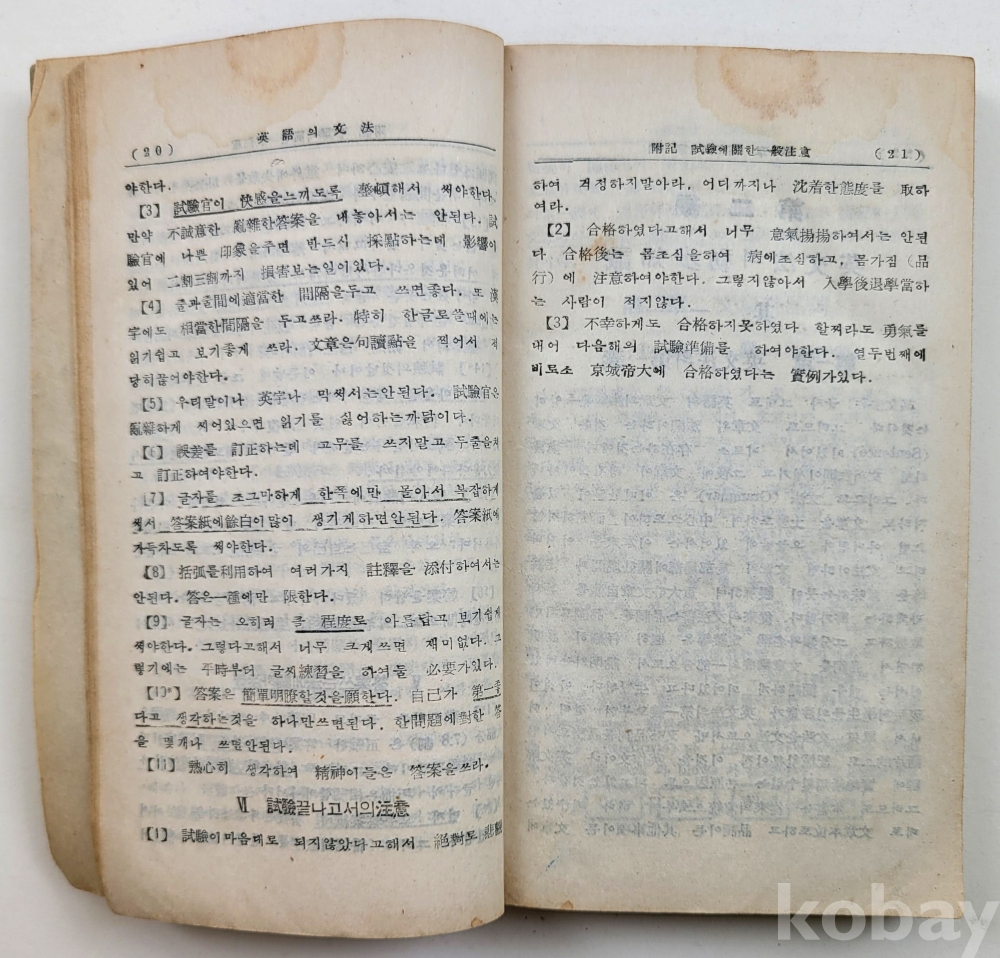 (20) 英語의文法
야한다.
【3】 試驗官이 快感을느끼도록 整頓해서 써야한다.
만약 不誠意한 亂雜한答案을 내놓아서는 안된다. 試
驗官에 나쁜 印象을주면 반드시 採點하는데 影響이
있어 二割三割까지 損害보는일이있다.
【4】 줄과줄間에適當한 間隔을두고 쓰면좋다. 또 漢
字에도 相當한間隔을 두고쓰라. 特히 한글로쓸때에는
읽기쉽고 보기좋게 쓰라. 文章은句讀點을 찍어서 적
당히끊어야한다.
【5】 우리말이나 英字나 막써서는안된다. 試驗官은
亂雜하게 써어있으면 읽기를 싫어하는까닭이다.
【6】 誤差를 訂正하는데 고무를 쓰지말고 두줄을쳐
고 訂正하여야한다.
【7】 글자를 조그마하게 한쪽에만 몰아서 복잡하게
써서 答案紙에餘白이많이 생기게하면안된다. 答案紙에
가득차도록 써야한다.
【8】 括弧를利用하여 여러가지 註釋을 添付하여서는
안된다. 答은一種에만 限한다.
【9】 글자는 오히려 클 程度로 아름답고 보기쉽게
써야한다. 그렇다고해서 너무 크게쓰면 재미없다. 그
렇기에는 平時부터 글씨練習을 하여둘 必要가있다.
【10】 答案은 簡單明瞭할것을願한다. 自己가 第一좋
다고 생각하는것을 하나만쓰면된다. 한問題에對한 答
을 몇개나 쓰면안된다.
【11】 熱心히 생각하여 精神이들은 答案을쓰라.
Ⅵ 試驗끝나고서의注意
【1】 試驗이마음대로 되지않았다고해서 絕對로 悲觀
附記 試驗에關한一般注意 (21)
하여 걱정하지말아라. 어디까지나 沈着한態度를 取하
여라.
【2】 合格하였다고해서 너무 意氣揚揚하여서는 안된
다 合格後는 몸조심을하여 病에조심하고, 몸가짐 (品
行)에 注意하여야한다. 그렇지않아서 入學後退學當하
는 사람이 적지않다.
【3】 不幸하게도 合格하지못하였다 할찌라도 勇氣를
내어 다음해의 試驗準備를 하여야한다. 열두번째에
비로소 京城帝大에 合格하였다는 實例가있다.
kobay